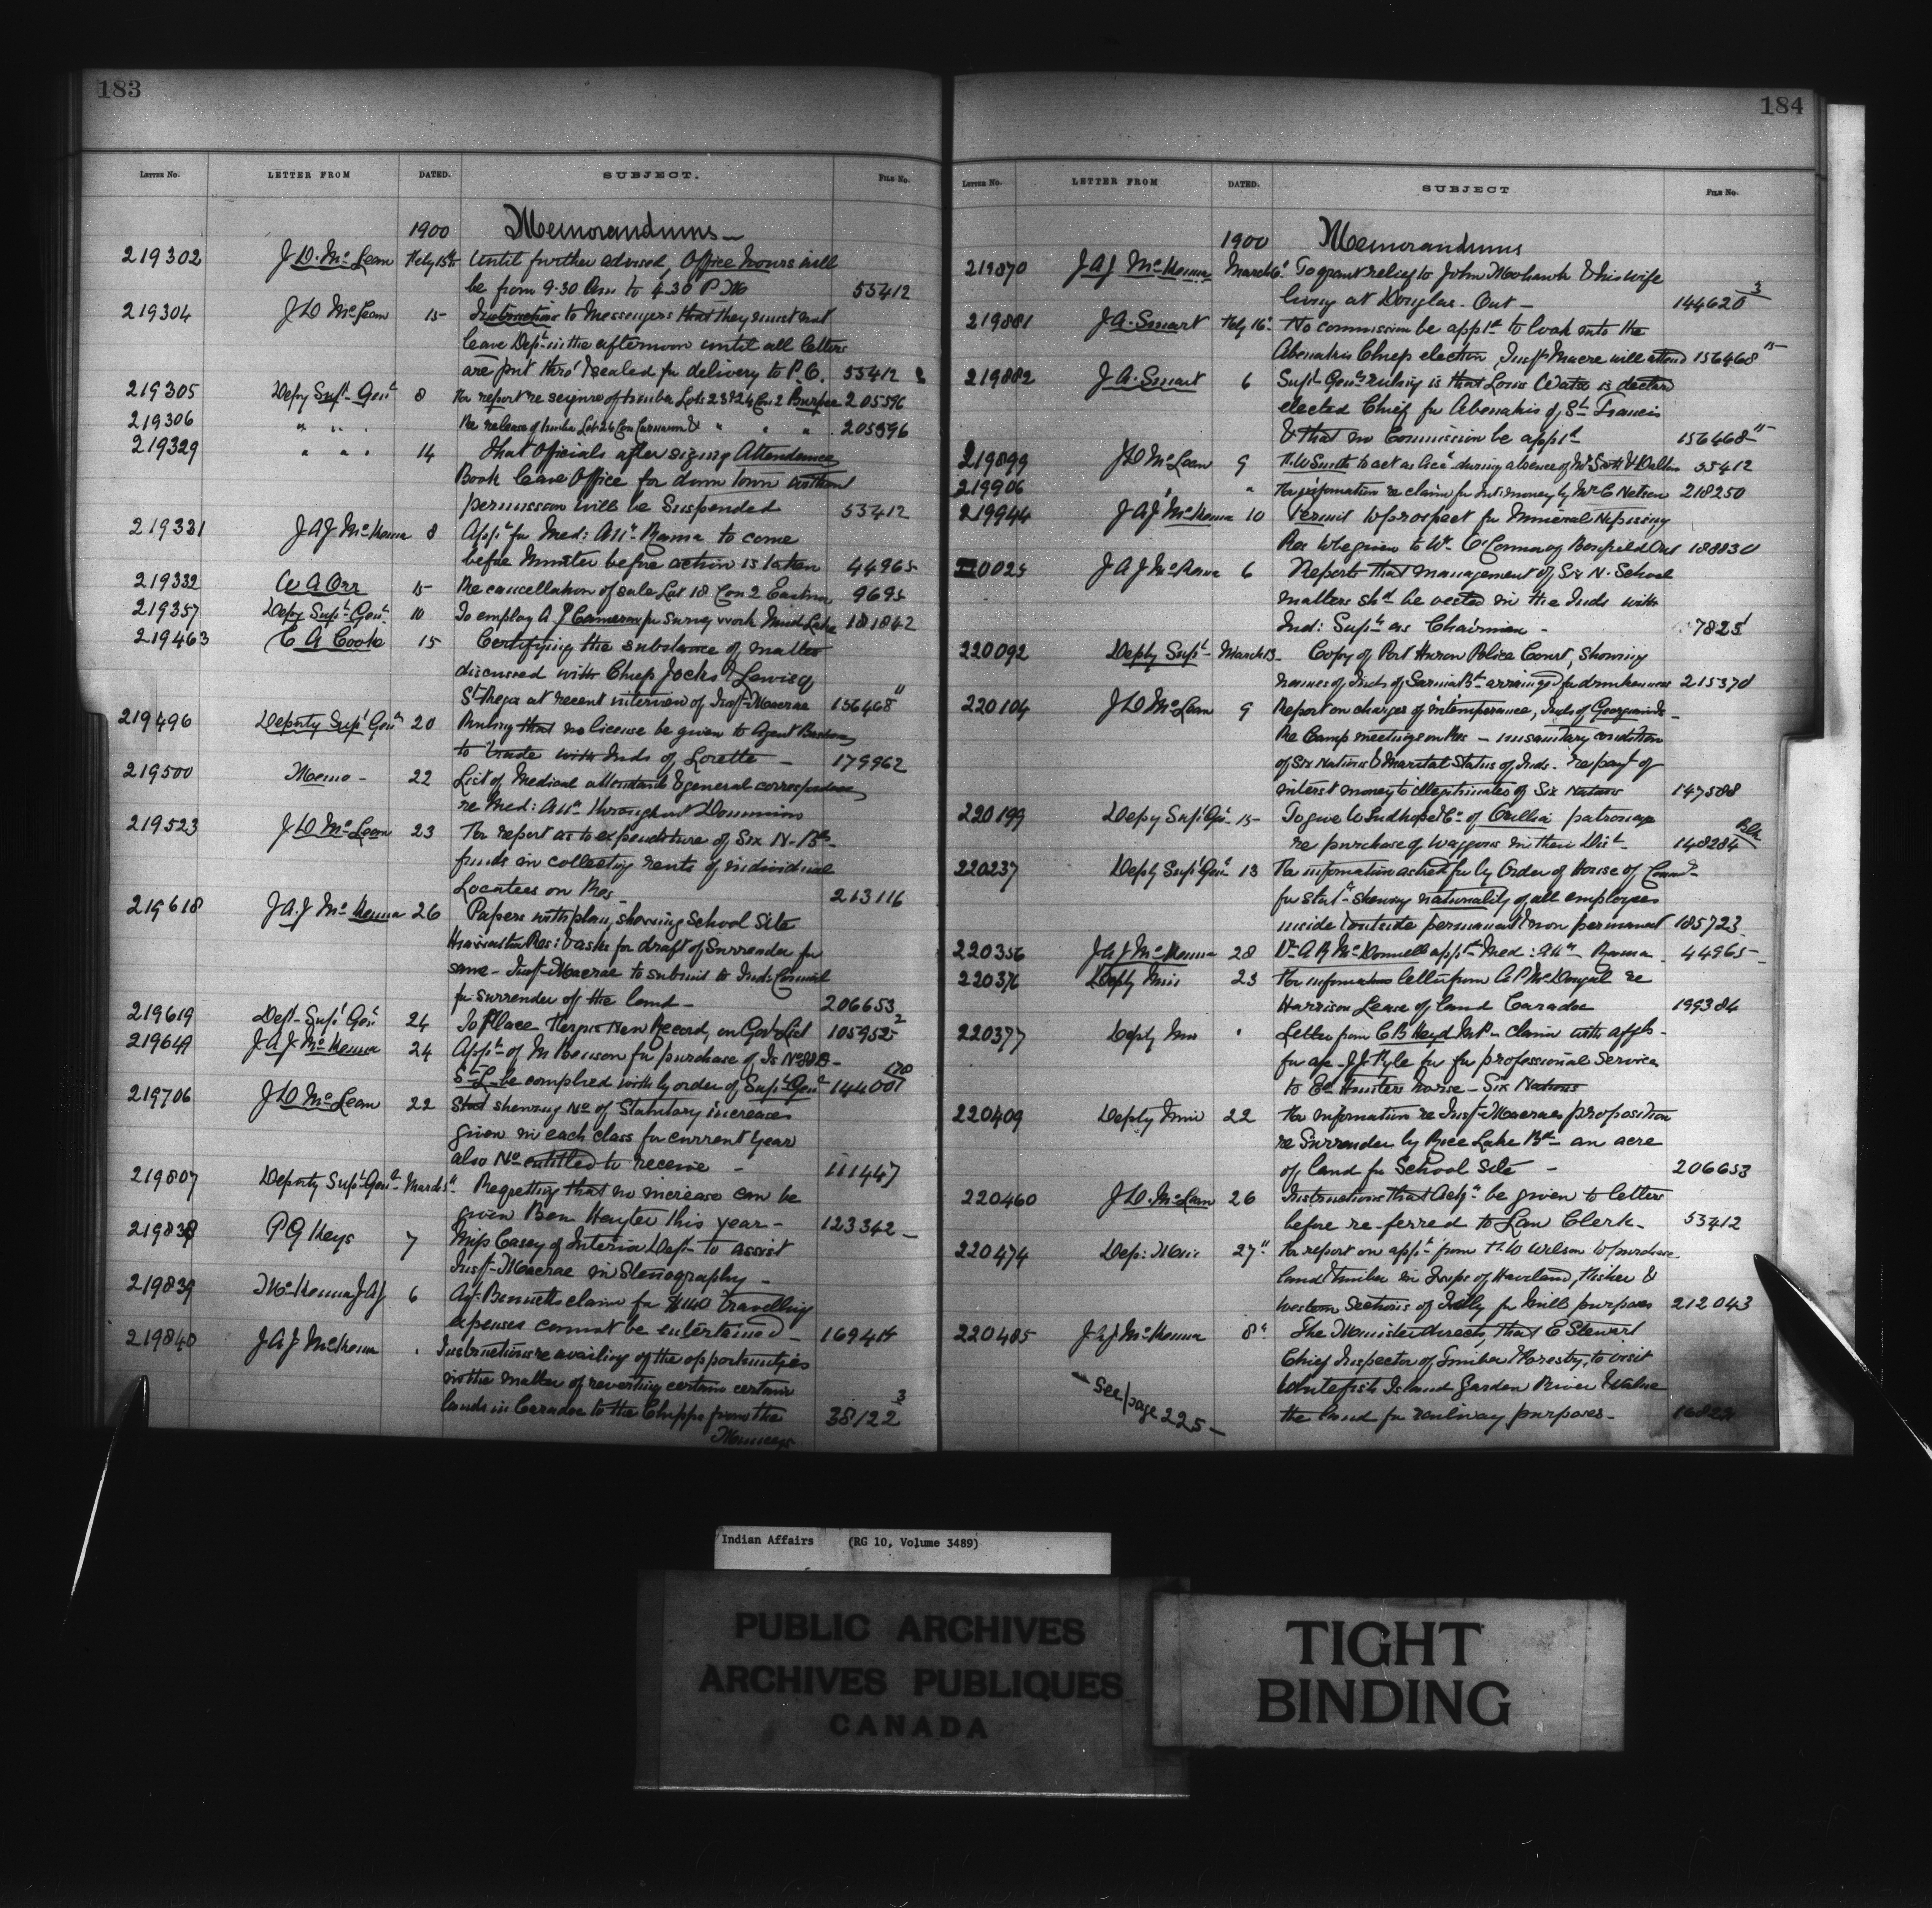 183
LETTER NO. LETTER FROM DATED. SUBJECT. FILE NO.
1900 Memorandums
219302 J.D. McLean Feby 15th Until further advised, Office hours will
be from 9.30 Am to 4.30 P.M 53412
219304 J D McLean 15 Instructions to Messengers that they must not
leave Dept in the afternoon until all letters
are put thro' & sealed for delivery to P.O. 53412
219305 Depy Supt Genl 8 For report re seizure of timber Lots 23 & 24 Con 2 Burpee 205596
219306 " " " Re release of timber Lot 26 Con Carnarvon & " " " 205596
219329 " " " 14 That Officials after signing Attendance
Book leave Office for down town without
permission will be Suspended 53412
219331 J A J McKenna 8 Appt for Med: Att Rama to come
before Minister before action is taken 44965
219332 W A Orr 15 Re cancellation of sale Lot 18 Con 2 Eastnor 9695
219357 Depy Supt Genl 10 To employ A P Cameron for survey work Mud Lake 181842
219463 C A Cooke 15 Certifying the substance of matter
discussed with Chiefs Jocks & Lewis of
St Regis at recent interview of Inspt Macrae 156468"
219496 Deputy Supt Genl 20 Ruling that no license be given to Agent Bastien
to trade with Inds of Lorette 179962
219500 Memo - 22 List of Medical attendants & general correspondence
re Med: Attn throughout Dominion
219523 J D McLean 23 For report as to expenditure of Six N. Bds
funds in collecting rents of individual
Locatees on Res - 213116
219618 J.A.J McKenna 26 Papers with plan, showing School Site
Hiawatha Res: & asks for draft of Surrender for
same - Inspt Macrae to submit to Inds Council
for surrender of the land - 206653
219619 Dept Supt Genl 24 To Place Regis New Record, on Govt List 105952 2
219649 J A J McKenna 24 Appn of M Benson for purchase of Is No
St L. be complied with by order of Supt Genl 144001
219706 J D McLean 22 Stat shewing No of Statutory increases
given in each class for current year
also No entitled to receive - 111447
219807 Deputy Supt Genl March 5" Regretting that no increase can be
given Ben Hayter this year - 123342
219838 P G Keys 7 Miss Casey of Interior Dept to assist
Inspt Macrae in Stenography -
219839 McKenna J A J 6 Agt Bennetts claim for $140 travelling
expenses cannot be entertained - 169414
219840 J A J McKenna " Instructions re availing of the opportunities
in the matter of reverting certain certain
lands in Caradoc to the Chipps from the 38122 3
Munceys
184
LETTER NO. LETTER FROM DATED. SUBJECT FILE NO.
1900 Memorandums
219870 J A J McKenna March 6" To grant relief to John Mohawk & his wife
living at Douglas - Ont - 144620 3
219881 J A. Smart Feby 16" No commission be appt to look into the
Abenakis Chiefs election, Inspt Macrae will attend 156468
219882 J A. Smart 6 Supt Genls ruling is that Louis Watso is declared
elected Chief for Abenakis of St Francis
& that no Commission be appt 156468
219899 J D McLean 9 H. W Smith to act as Acct during absence of Mr Scott & Dalton 53412
219906 " For information re claim for Int: money by Mr C Nelson 218250
219944 J A J McKenna 10 Permit to prospect for Mineral Nipissing
Res to be given to Wm O'Connor of Bonfield Ont 188830
220025 J A J McKenna 6 Reports that management of Six N. School
matters shd be vested in the Inds with
Ind: Supt as Chairman - 7825
220092 Depty Supt March 13 Copy of Port Huron Police Court, showing
names of Inds of Sarnia Bd arraigned for drunkenness 215370
220104 J D McLean 9 Report on charges of intemperance, Inds of Georgina Is -
Re Camp meetings on Res - insanitary condition
of Six Nations & Marital Status of Inds - re payt of
interest money to illegitimates of Six Nations 147508
220199 Depy Supt Gn 15 To give Tudhope & Co of Orillia patronage
re purchase of Waggons in their Dist 148284 Blk
220237 Depty Supt Genl 13 For information asked for by Order of House of Comns
for Statt shewing nationality of all employees
inside & outside permanent & non permanent 185723
220356 J A J McKenna 28 Dr A R McDonnell appt Med: Attn Rama 44965
220376 Depty Min 23 For information letter from A P McDougal re
Harrison Lease of land Caradoc 199384
220377 Depty Min " Letter from C B Heyd M.P - claim with affts
for - J.J. Pyle for professional Services
to Ed Hunters horse - Six Nations
220409 Depty Min 22 For information re Inspt Macraes proposition
re Surrender by Rice Lake Bd an acre
of land for School Site - 206653
220460 J.D. McLean 26 Instructions that Ackn be given to letters
before re-ferred to Law Clerk - 53412
220474 Dep: Min 27" For report on appn from H.W Wilson to purchase
land & timber in Twps of Haviland, Fisher &
Western Sections of Tilly for Mill purposes 212043
220485 J A J McKenna 8" The Minister directs, that E Stewart
Chief Inspector of Timber & Forestry, to visit
Whitefish Island Garden River & Value
the land for railway purposes -
See page 225 -
Indian Affairs (RG 10, Volume 3489)
PUBLIC ARCHIVES
ARCHIVES PUBLIQUES
CANADA
TIGHT
BINDING